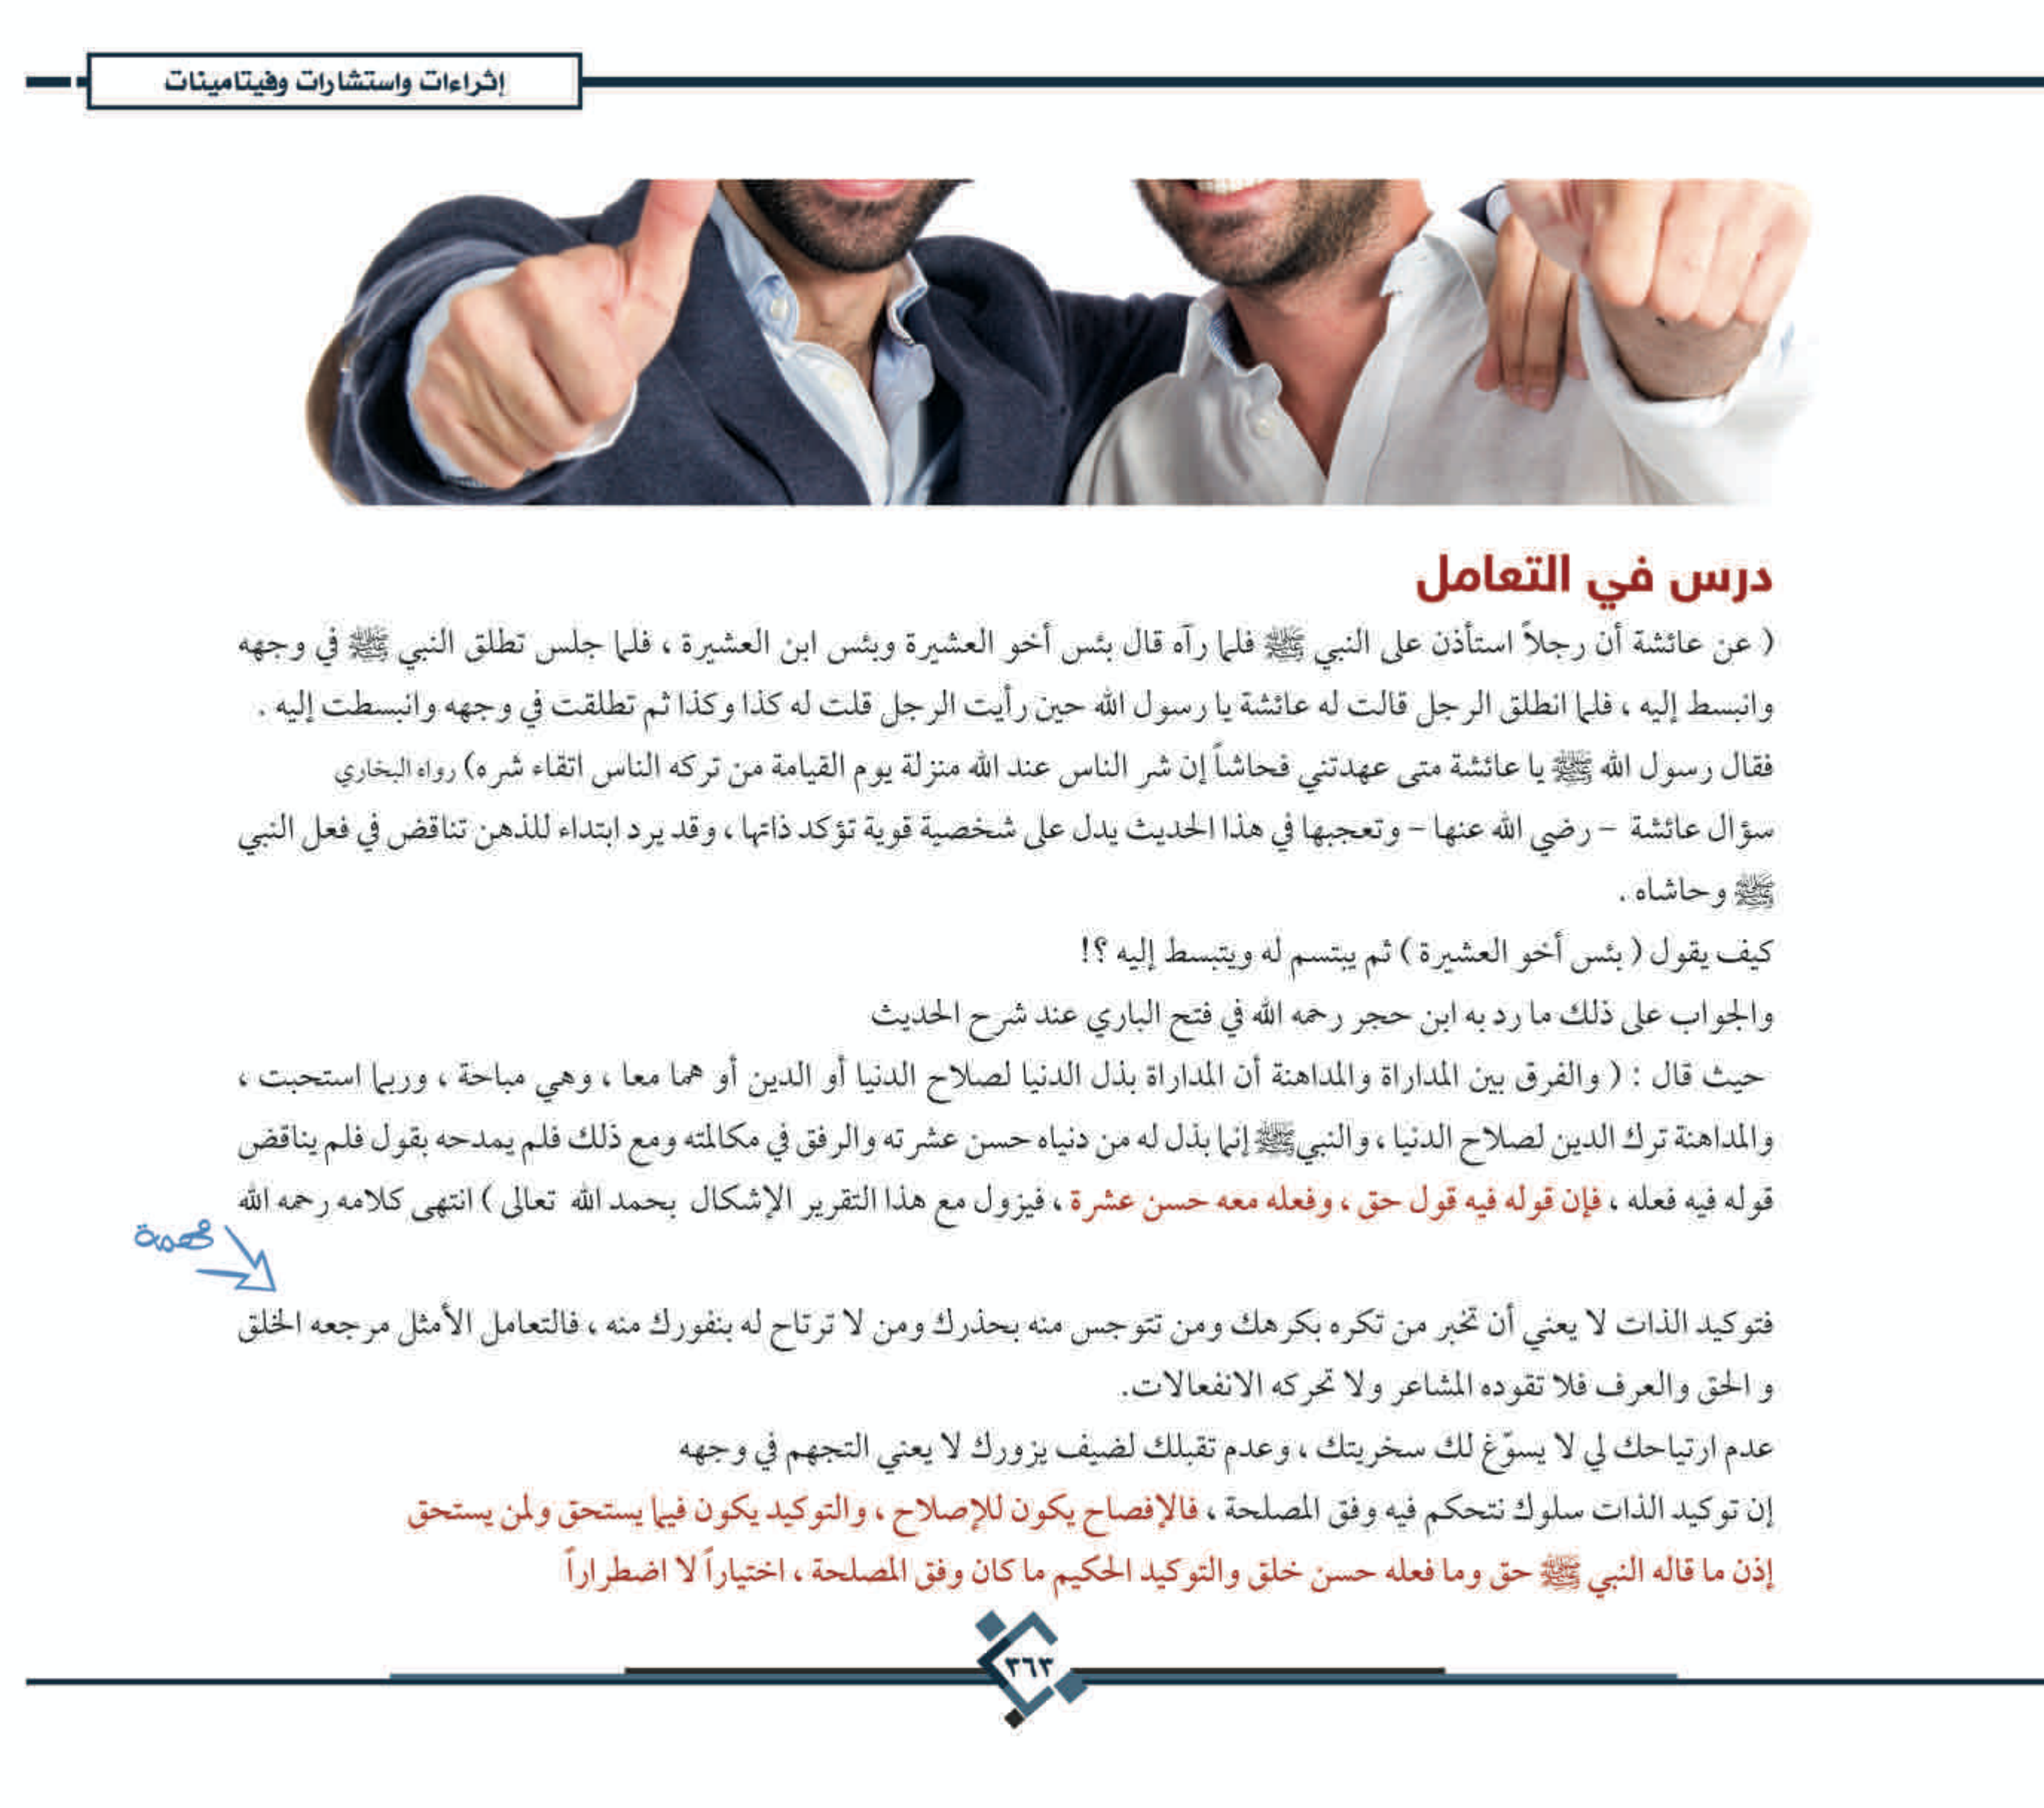 إثراءات واستشارات وفيتامينات
درس في التعامل
( عن عائشة أن رجلاً استأذن على النبي ﷺ فلما رآه قال بئس أخو العشيرة وبئس ابن العشيرة ، فلما جلس تطلق النبي ﷺ في وجهه
وانبسط إليه ، فلما انطلق الرجل قالت له عائشة يا رسول الله حين رأيت الرجل قلت له كذا وكذا ثم تطلقت في وجهه وانبسطت إليه .
فقال رسول الله ﷺ يا عائشة متى عهدتني فحاشاً إن شر الناس عند الله منزلة يوم القيامة من تركه الناس اتقاء شره) رواه البخاري
سؤال عائشة – رضي الله عنها – وتعجبها في هذا الحديث يدل على شخصية قوية تؤكد ذاتها ، وقد يرد ابتداء للذهن تناقض في فعل النبي
ﷺ وحاشاه .
كيف يقول ( بئس أخو العشيرة ) ثم يبتسم له ويتبسط إليه ؟!
والجواب على ذلك ما رد به ابن حجر رحمه الله في فتح الباري عند شرح الحديث
حيث قال : ( والفرق بين المداراة والمداهنة أن المداراة بذل الدنيا لصلاح الدنيا أو الدين أو هما معا ، وهي مباحة ، وربما استحبت ،
والمداهنة ترك الدين لصلاح الدنيا ، والنبي ﷺ إنما بذل له من دنياه حسن عشرته والرفق في مكالمته ومع ذلك فلم يمدحه بقول فلم يناقض
قوله فيه فعله ، فإن قوله فيه قول حق ، وفعله معه حسن عشرة ، فيزول مع هذا التقرير الإشكال بحمد الله تعالى ) انتهى كلامه رحمه الله
مهمة
فتوكيد الذات لا يعني أن تخبر من تكره بكرهك ومن تتوجس منه بحذرك ومن لا ترتاح له بنفورك منه ، فالتعامل الأمثل مرجعه الخلق
و الحق والعرف فلا تقوده المشاعر ولا تحركه الانفعالات.
عدم ارتياحك لي لا يسوّغ لك سخريتك ، وعدم تقبلك لضيف يزورك لا يعني التجهم في وجهه
إن توكيد الذات سلوك نتحكم فيه وفق المصلحة ، فالإفصاح يكون للإصلاح ، والتوكيد يكون فيما يستحق ولمن يستحق
إذن ما قاله النبي ﷺ حق وما فعله حسن خلق والتوكيد الحكيم ما كان وفق المصلحة ، اختياراً لا اضطراراً
٣٦٣